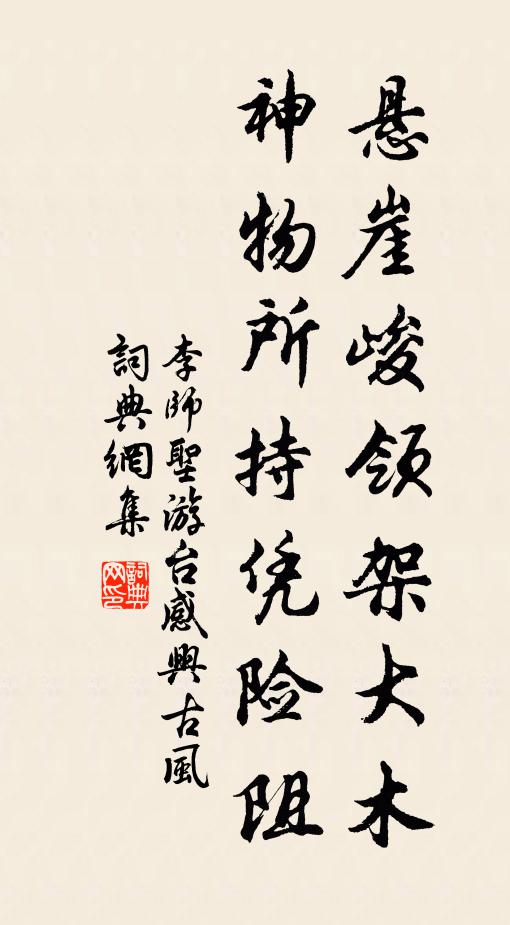 悬崖峻领架大木
神物所持凭险阻
李師聖游台感興古風
詞典網集
詞典网印